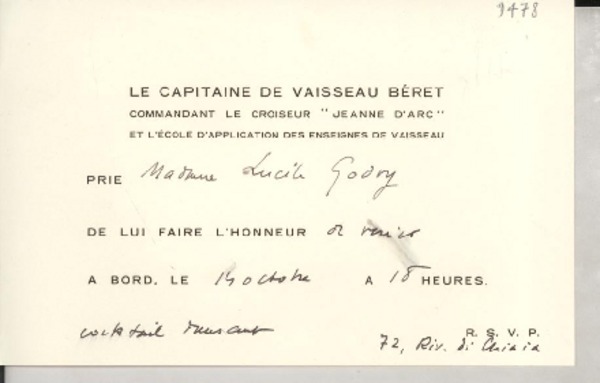 9478
LE CAPITAINE DE VAISSEAU BÉRET
COMMANDANT LE CROISEUR "JEANNE D'ARC"
ET L'ÉCOLE D'APPLICATION DES ENSEIGNES DE VAISSEAU
PRIE Madame Lucila Godoy
DE LUI FAIRE L'HONNEUR de venir
A BORD, LE 14 octobre A 18 HEURES.
cocktail dansant
R. S. V. P.
72, Riv. di Chiaia